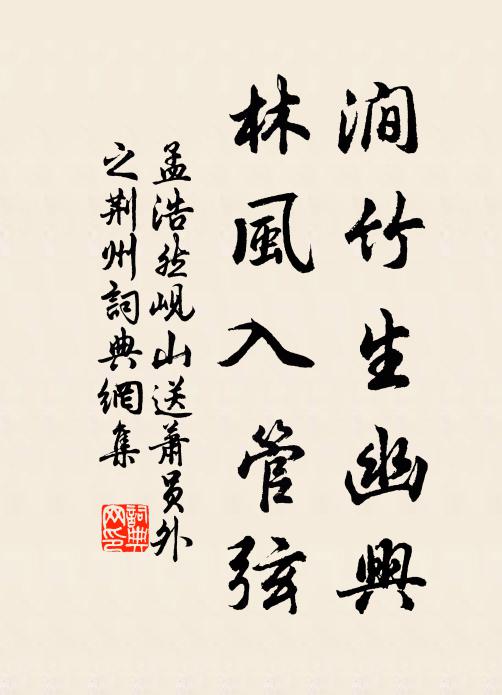 澗竹生幽興
林風入管弦
孟浩然峴山送蕭员外
之荆州詞典網集
詞典
网印